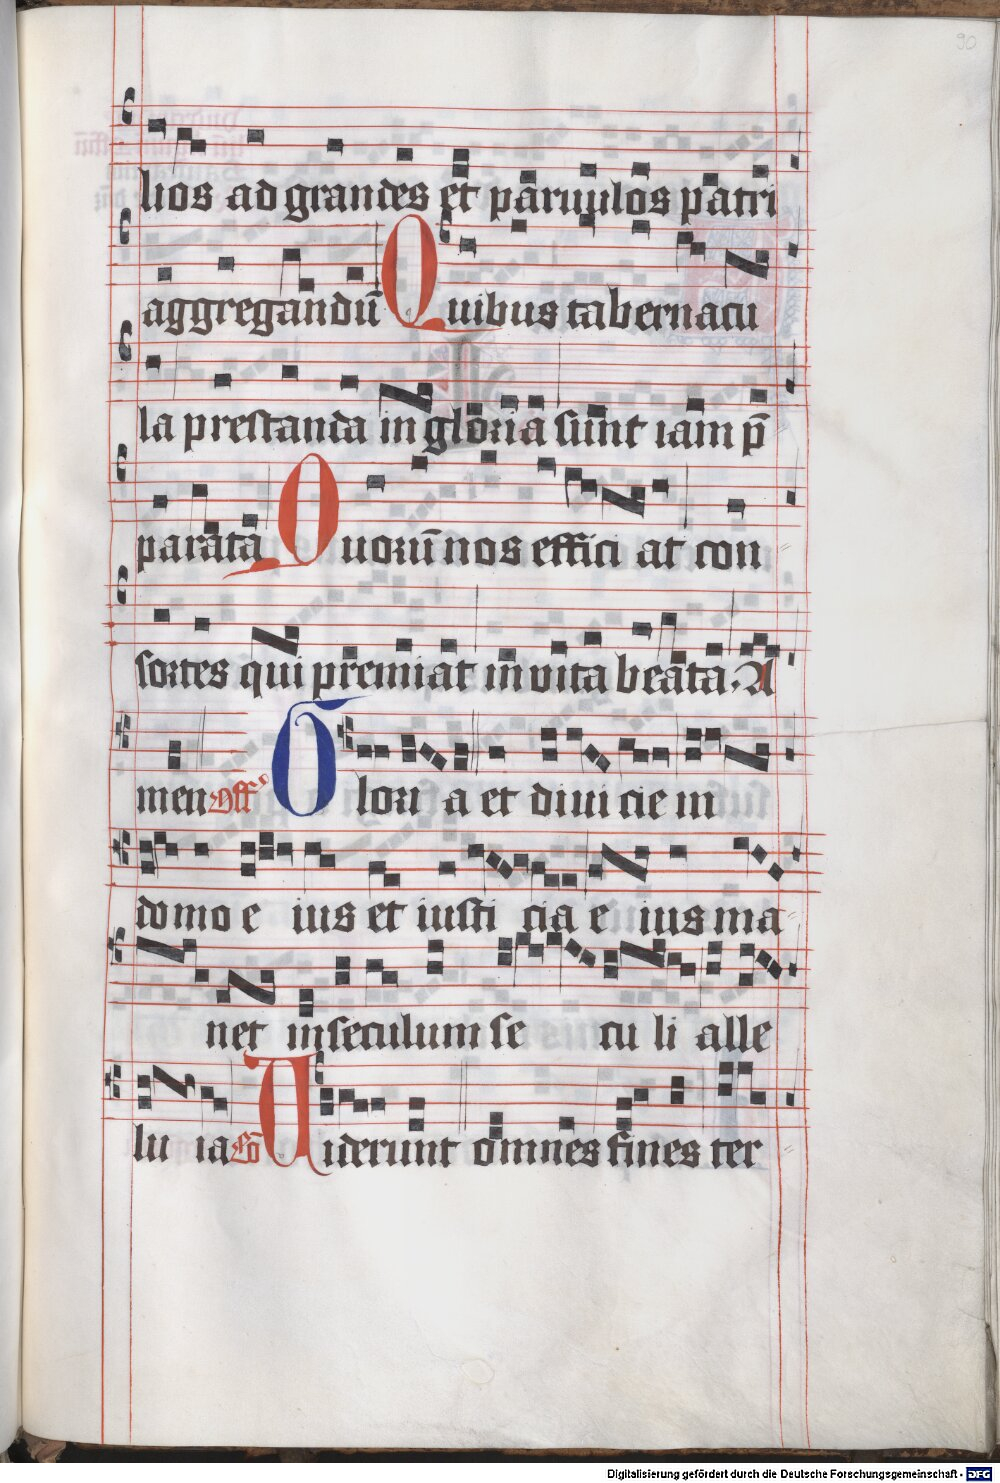 90
lios ad grandes et paruulos patri
aggregandū Quibus tabernacu
la prestanda in gloria sunt iam p̄
parata Quorū nos effici at con
sortes qui premiat in vita beata. A
men Off Glori a et diui cie in
domo e ius et iusti cia e ius ma
net in seculum se cu li alle
lu ia Cō Uiderunt omnes fines ter
Digitalisierung gefördert durch die Deutsche Forschungsgemeinschaft - DFG